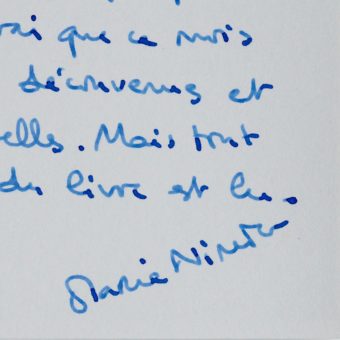 rai que ce mois
déconvenues et
elles. Mais tout
du livre est lu.
Marie Nimier